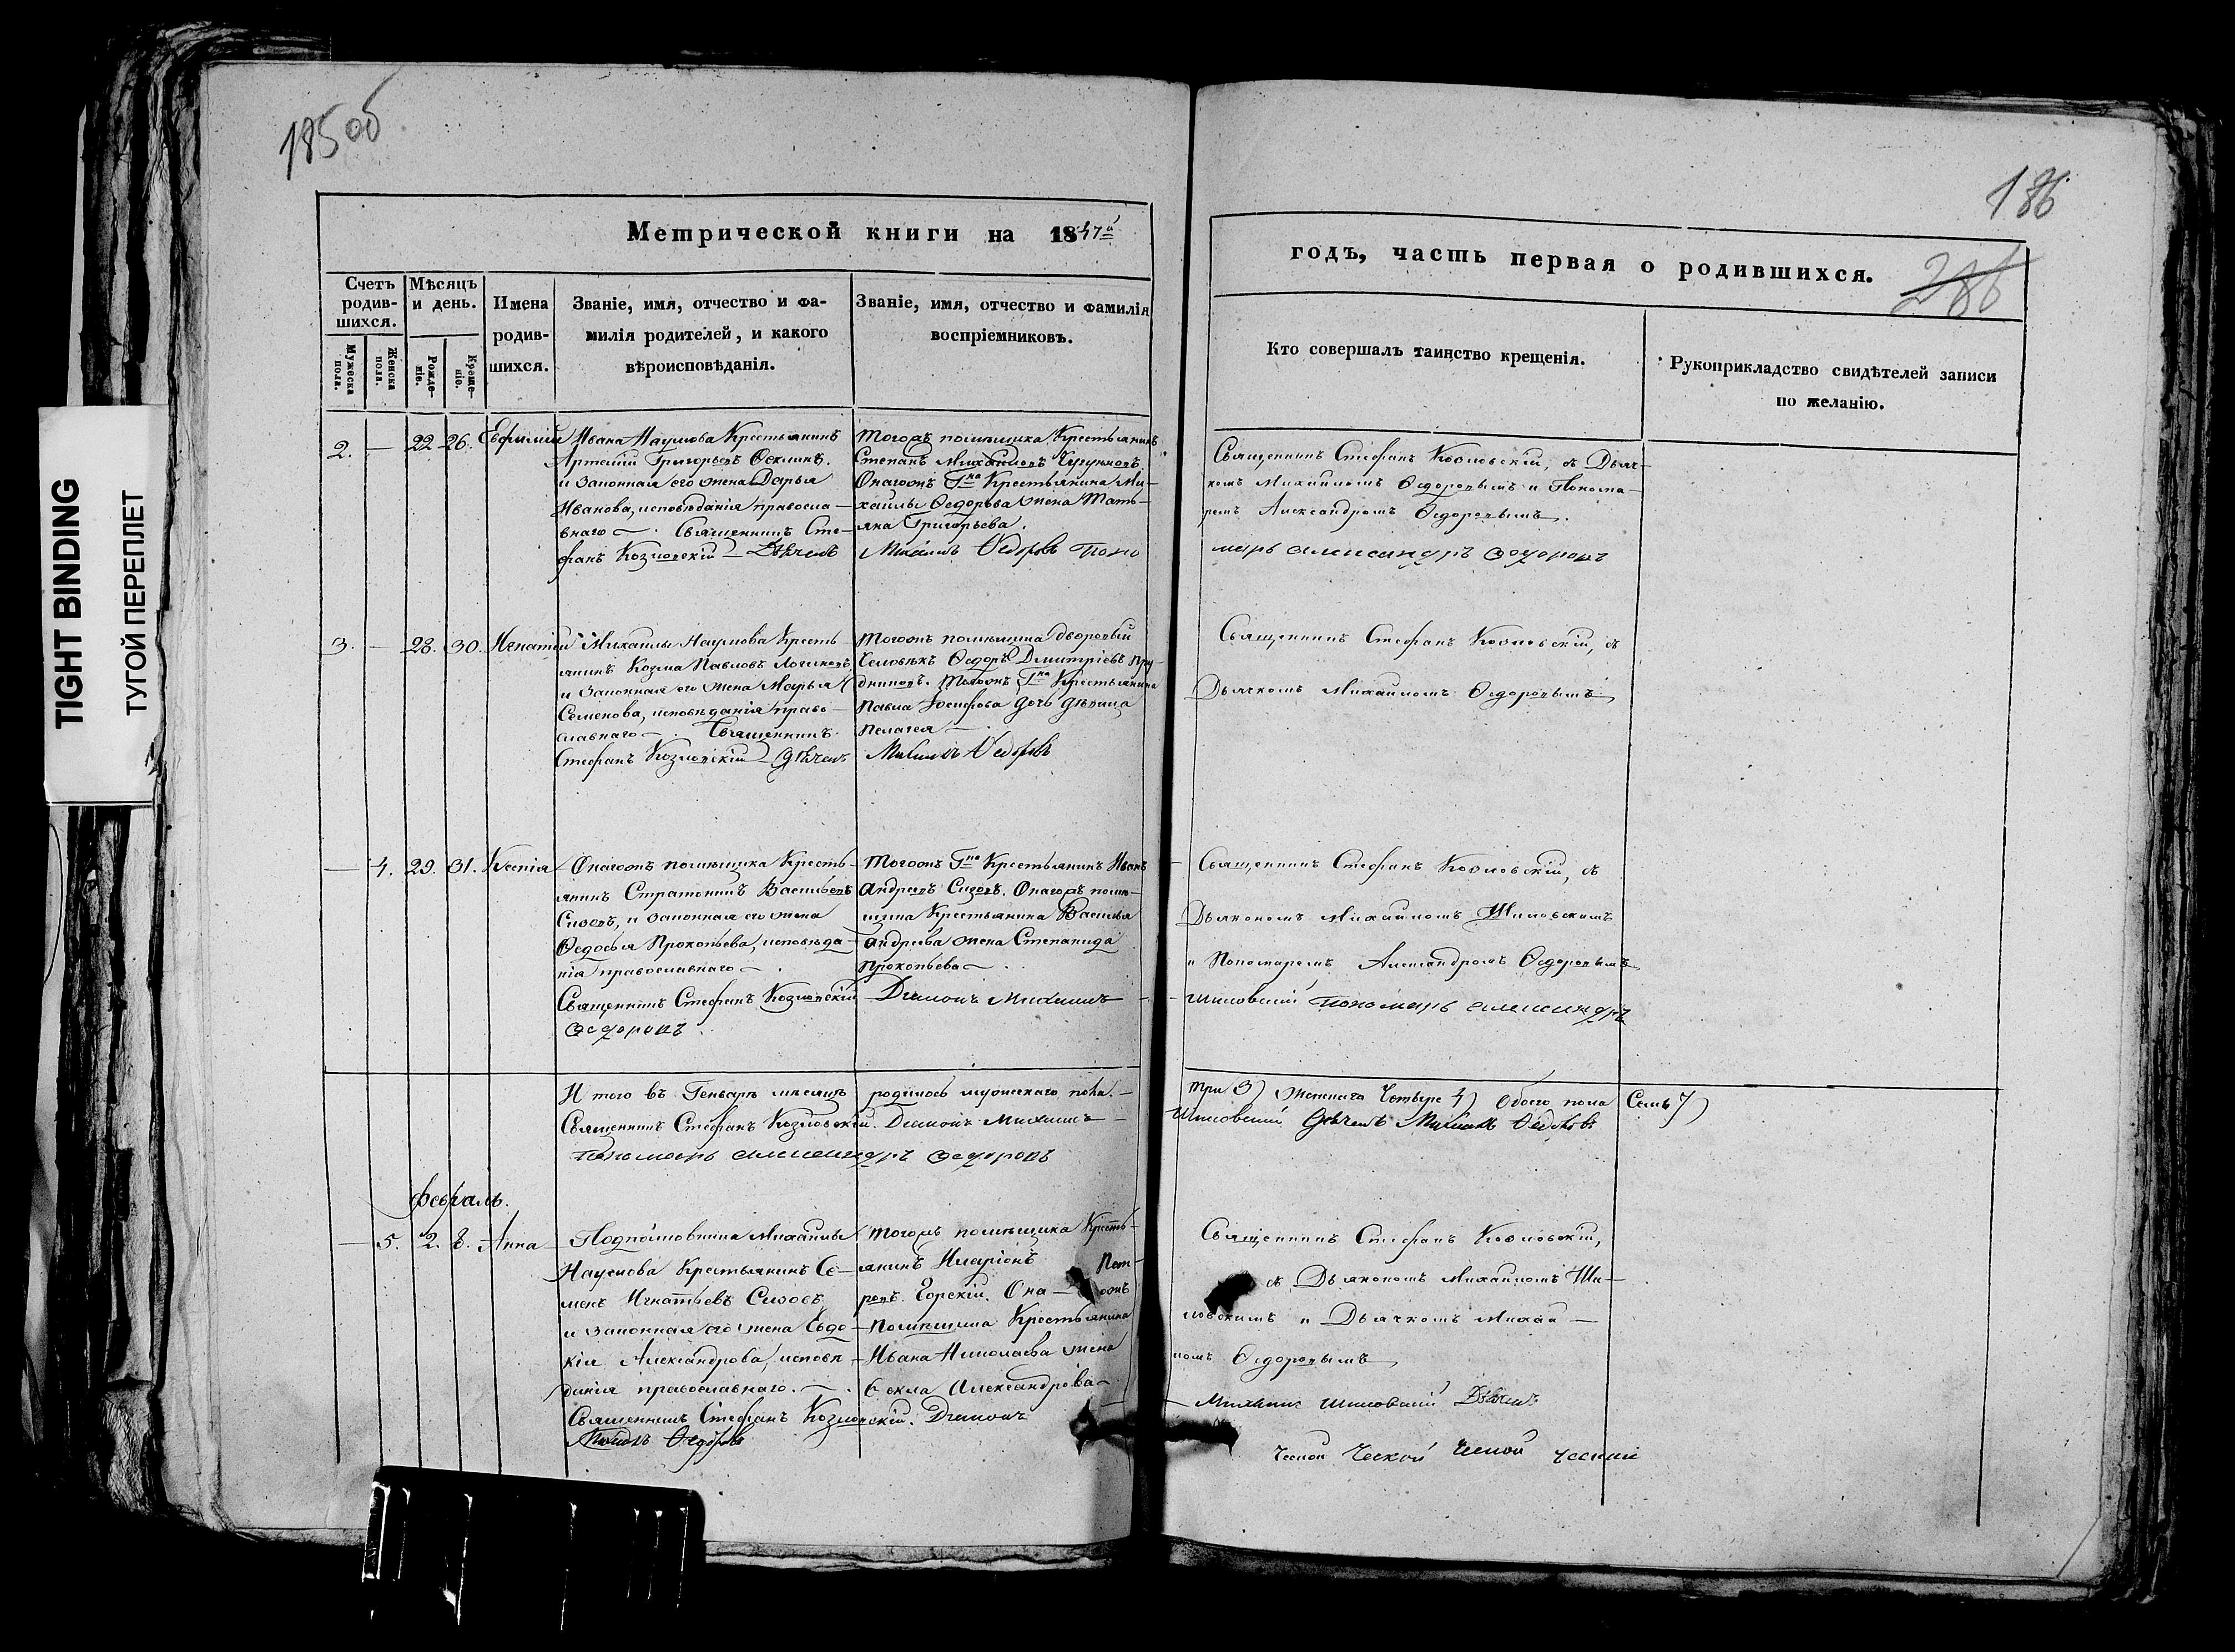 185 об
186
286
TIGHT BINDING
ТУГОЙ ПЕРЕПЛЕТ
Метрической книги на 1847й
годъ, часть первая о родившихся.
Счетъ родив-
шихся.
Мужеска пола.
Женска пола.
Мѣсяцъ
и день.
Рожде-
ніе.
Креще-
ніе.
Имена
родив-
шихся.
Званіе, имя, отчество и фа-
милія родителей, и какого
вѣроисповѣданія.
Званіе, имя, отчество и фамилія
воспріемниковъ.
Кто совершалъ таинство крещенія.
Рукоприкладство свидѣтелей записи
по желанію.
2. — 22 26. Евфимій
Ивана Наумова Крестьянинъ
Артемій Григорьевъ
и законная его жена Дарья
Иванова, исповѣданія правосла-
внаго —. Священникъ Сте-
фанъ Козловскій — Дьячекъ
Тогожъ помѣщика Крестьянинъ
Степанъ Михайловъ
Онагожъ Гна Крестьянина Ми-
хайлы Ѳедорова жена Тать-
яна Григорьева.
Михаилъ Ѳедоровъ Поно
Священникъ Стефанъ Козловскій, съ Дьяч-
комъ Михаиломъ Ѳедоровымъ и Понома-
ремъ Александромъ Ѳедоровымъ.
марь Александръ Ѳедоровъ
3. — 28. 30. Игнатій
Михаилы Наумова Кресть-
янинъ Козма Павловъ
и законная его жена Марья
Семенова, исповѣданія право-
славнаго —. Священникъ
Стефанъ Козловскій дьячекъ
Тогожъ помѣщика дворовый
Человѣкъ Ѳедоръ Дмитріевъ Пру-
дниковъ. Тогожъ Гна Крестьянина
Павла Іосифова дочь дѣвица
Пелагея —
Михаилъ Ѳедоровъ
Священникъ Стефанъ Козловскій, съ
Дьячкомъ Михаиломъ Ѳедоровымъ
— 4. 29. 31. Ксенія
Онагожъ помѣщика Кресть-
янинъ Стратонникъ Васильевъ
Сизовъ, и законная его жена
Ѳедосья Прокопьева, исповѣда-
нія православнаго —.
Священникъ Стефанъ Козловскій
Ѳедоровъ
Тогожъ Гна Крестьянинъ Иванъ
Андреевъ Сизовъ. Онагожъ помѣ-
щика Крестьянина Василья
Андреева жена Степанида
Прокопьева —.
Дьяконъ Михаилъ —
Священникъ Стефанъ Козловскій, съ
Дьякономъ Михаиломъ Шиловскимъ
и Пономаремъ Александромъ Ѳедоровымъ
Шиловскій пономарь Александръ
И того въ Генварѣ мѣсяцѣ родилось мужескаго пола. —
три 3) женскаго Четыре 4) Обоего пола Семь 7)
Священникъ Стефанъ Козловскій. Дьяконъ Михаилъ —
Шиловскій дьячекъ Михаилъ Ѳедоровъ
Пономарь Александръ Ѳедоровъ
Февраль.
— 5. 2. 8. Анна
Подполковника Михаилы
Наумова Крестьянинъ Се-
менъ Игнатьевъ Сизовъ,
и законная его жена Евдо-
кія Александрова, исповѣ-
данія православнаго. —.
Священникъ Стефанъ Козловскій. Дьяконъ
Михаилъ Ѳедоровъ
Тогожъ помѣщика Кресть-
янинъ Иларіонъ Пет-
ровъ Горскій. Она-гожъ
Помѣщика Крестьянина
Ивана Николаева жена
Ѳекла Александрова
Священникъ Стефанъ Козловскій,
съ Дьякономъ Михаиломъ Ши-
ловскимъ и Дьячкомъ Михаи-
ломъ Ѳедоровымъ
Михаилъ Шиловскій Дьячекъ